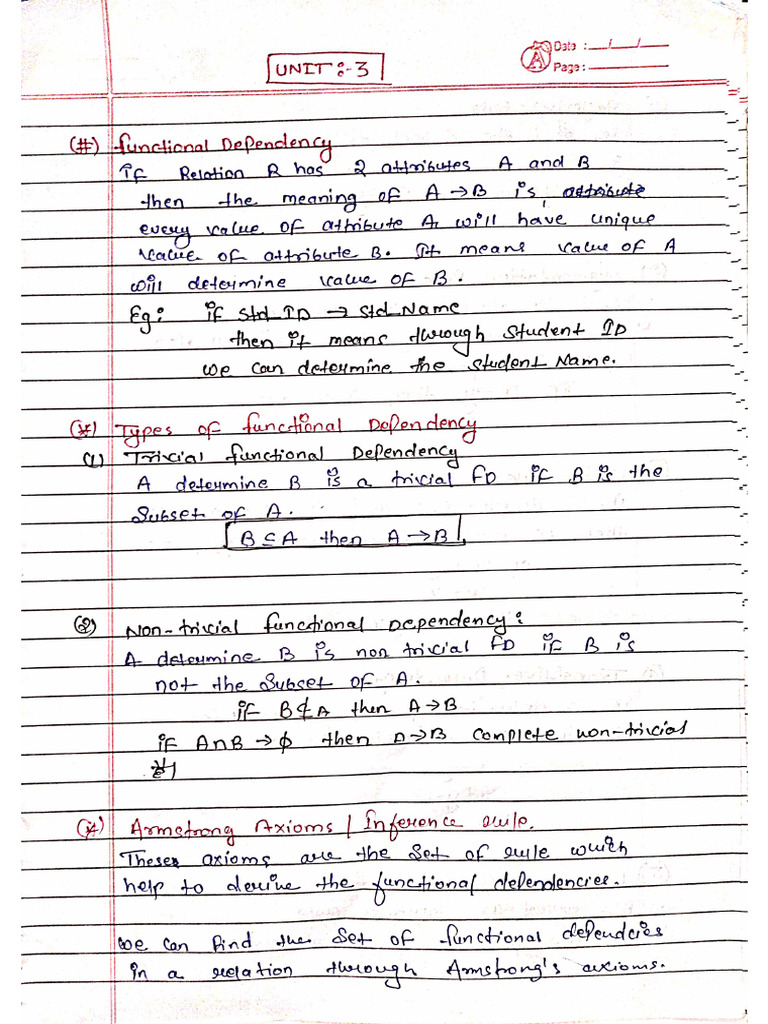 UNIT:-3
Date : __/__/__
Page : ________
(#) Functional Dependency
If Relation R has 2 attributes A and B
then the meaning of A → B is, attribute
every value of attribute A, will have unique
value of attribute B. It means value of A
will determine value of B.
Eg: if Std_ID → Std_Name
then it means through Student ID
we can determine the Student Name.
(*) Types of functional Dependency
(1) Trivial functional Dependency
A determine B is a trivial FD if B is the
Subset of A.
B ⊆ A then A → B
(2) Non-trivial functional Dependency:
A determine B is non trivial FD if B is
not the Subset of A.
if B ⊄ A then A → B
if A∩B → ϕ then A→B complete non-trivial
है।
(*) Armstrong Axioms / Inference rule.
These axioms are the Set of rule which
help to derive the functional dependencies.
We can find the Set of functional dependcies
in a relation through Armstrong's axioms.